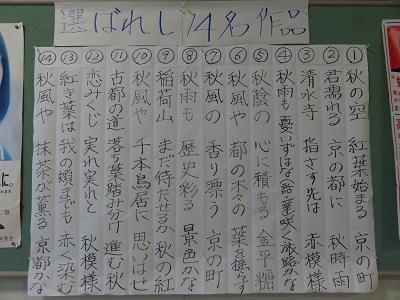 選ばれし14名作品
① 秋の空 紅葉始まる 京の町
② 君濡れる 京の都に 秋時雨
③ 清水寺 指さす先は 赤模様
④ 秋雨も 憂いずはな 話に華咲く 旅路かな
⑤ 秋蔭の 心に積もる 金平糖
⑥ 秋風や 都の木々の 葉を撫ず
⑦ 秋風の 香り漂う 京の町
⑧ 秋雨も 歴史彩る 景色かな
⑨ 稲荷山 まだ待たせるか 秋の紅
⑩ 秋風や 千本鳥居に 思いはせ
⑪ 古都の道 落ち葉踏み分け 進む秋
⑫ 恋みくじ 実れ実れと 秋模様
⑬ 紅き葉は 我の頬までも 赤く染む
⑭ 秋風や 抹茶が薫る 京都かな